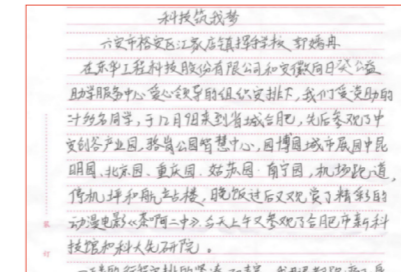 科技筑我梦
六安市裕安区江家店镇挥手学校 郭嫣冉
在东华工程科技股份有限公司和安徽向日葵公益
助学服务中心爱心领导的组织安排下,我们受资助的
汁多名同学,于12月9日来到省城合肥,先后参观了中
安创谷产业园,骆岗公园智慧中心,园博园城市展园中昆
明园、北京园、重庆园、姑苏园、南宁园,机场跑道,
停机坪和航站楼,晚饭过后又观赏了精彩的
动漫电影《茶阿二中》今天上午又参观了合肥市新科
技馆和科大先研院。
装
订